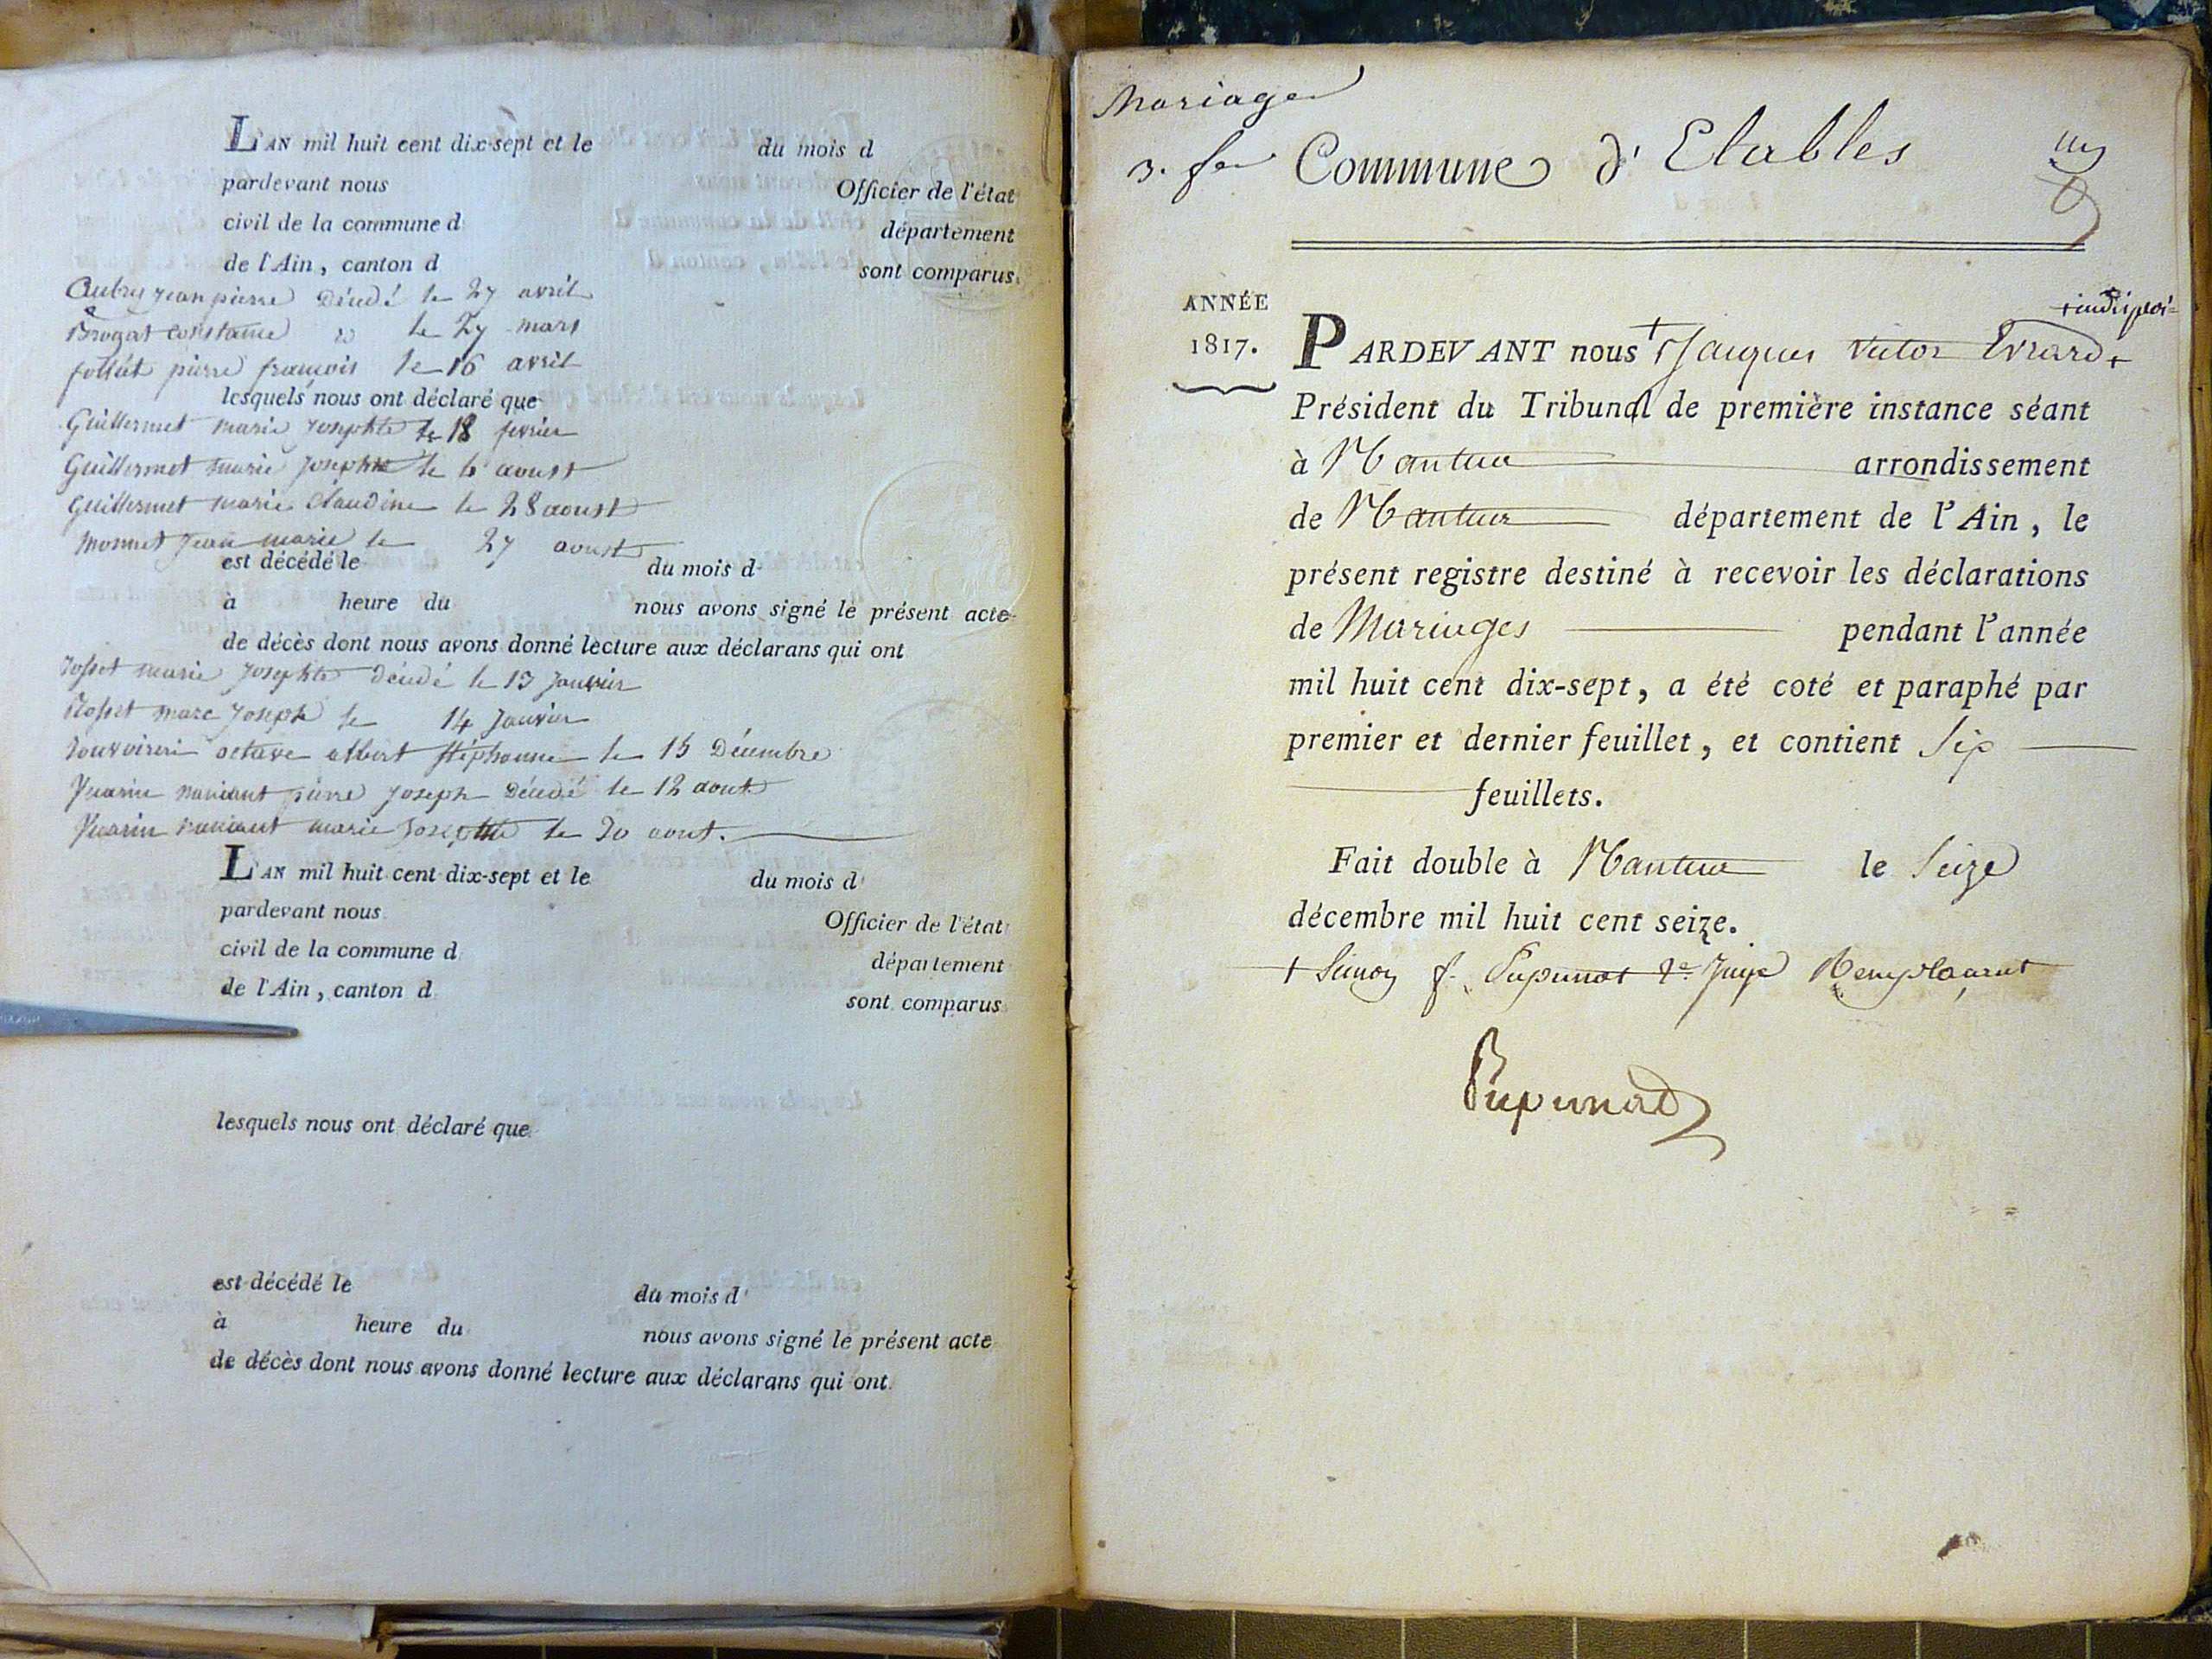 L'AN mil huit cent dix-sept et le du mois d
pardevant nous Officier de l'état
civil de la commune d département
de l'Ain, canton d sont comparus
Aubry jean pierre Décédé le 27 avril
Brogat constance le 27 mars
pierre françois le 16 avril
lesquels nous ont déclaré que
Guillermet marie josephte le 18 fevrier
Guillermet marie josephte le 6 aoust
Guillermet marie claudine le 28 aoust
Monnet jean marie le 27 aoust
est décédé le du mois d
à heure du nous avons signé le présent acte
de décès dont nous avons donné lecture aux déclarans qui ont
Rosset marie josephte décédé le 13 janvier
Rosset marc joseph le 14 janvier
octave albert le 15 Décembre
pierre joseph Décédé le 12 aout
marie josephte le 30 aout.
L'AN mil huit cent dix-sept et le du mois d
pardevant nous Officier de l'état
civil de la commune d département
de l'Ain, canton d sont comparus
lesquels nous ont déclaré que
est décédé le du mois d
à heure du nous avons signé le présent acte
de décès dont nous avons donné lecture aux déclarans qui ont
Mariages
3. fer Commune d'Etables un
ANNÉE
1817.
PARDEVANT nous + Jacques Victor Evrard +
Président du Tribunal de première instance séant
à Nantua arrondissement
de Nantua département de l'Ain, le
présent registre destiné à recevoir les déclarations
de Mariages pendant l'année
mil huit cent dix-sept, a été coté et paraphé par
premier et dernier feuillet, et contient six
feuillets.
Fait double à Nantua le seize
décembre mil huit cent seize.
+ Simon f. Pupunat 1er Juge Remplaçant
Pupunat